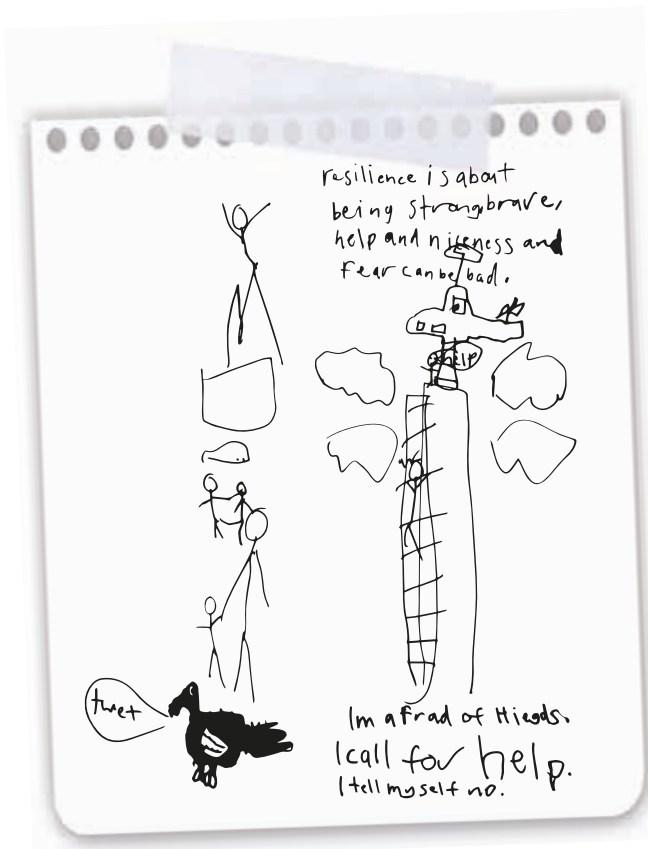 resilience is about
being strong brave,
help and niceness and
fear can be bad.
help
twet
Im afrad of Hieds.
I call for help.
I tell myself no.